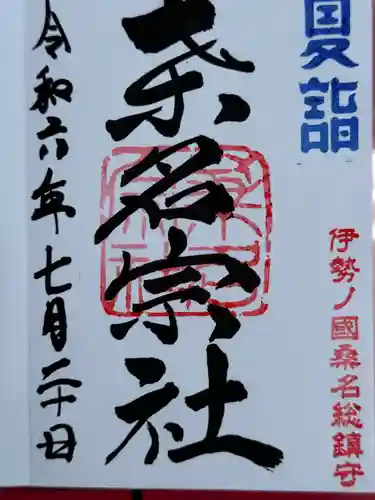 夏詣
伊勢ノ國桑名総鎮守
桑名宗社
令和六年七月二十日